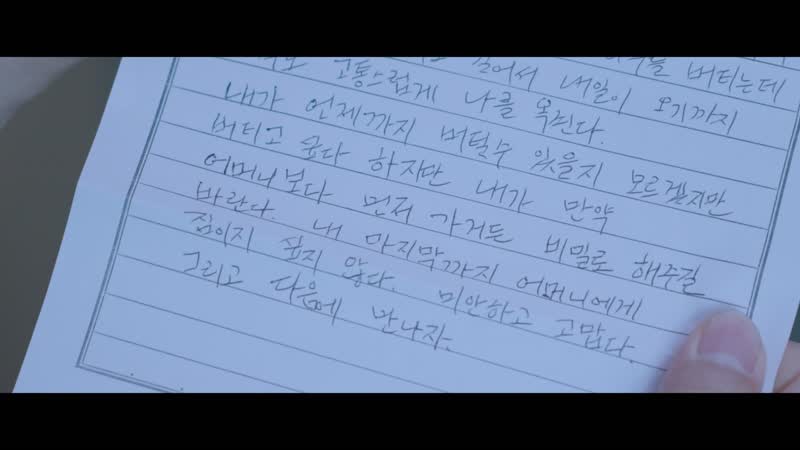 버티는데
길어서 내일이 오기까지
고통스럽게 나를 옥죈다.
내가 언제까지 버틸수 있을지 모르겠지만
버티고 싶다 하지만 내가 만약
어머니보다 먼저 가거든 비밀로 해주길
바란다. 내 마지막까지 어머니에게
짐이지 싶지 않다. 미안하고 고맙다.
그리고 다음에 만나자.